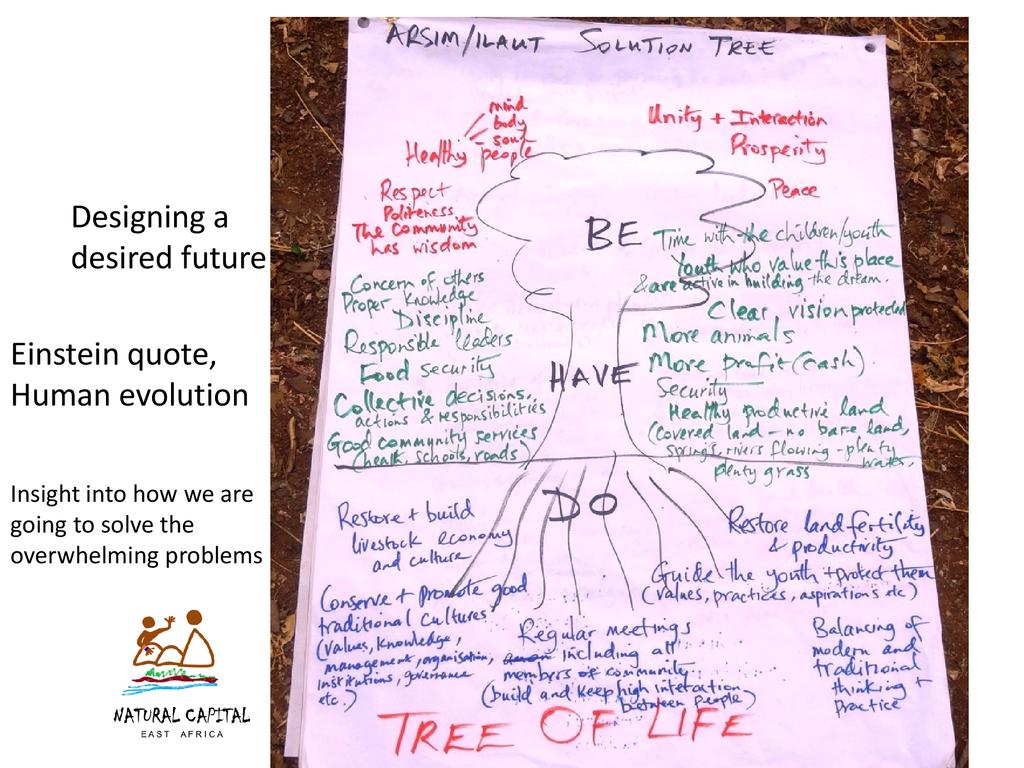 Designing a
desired future
Einstein quote,
Human evolution
Insight into how we are
going to solve the
overwhelming problems
NATURAL CAPITAL
EAST AFRICA
ARSIM/ILAUT SOLUTION TREE
mind
body
soul
Healthy people
Unity + Interaction
Prosperity
Peace
Respect
Politeness
The Community
has wisdom
BE
Time with the children/youth
Youth who value this place
& are active in building the dream.
Clear, vision protected
More animals
More profit (cash).
Security
Healthy productive land
(covered land - no bare land,
springs, rivers flowing - plenty
water,
plenty grass
Concern of others
Proper knowledge
Discipline
Responsible leaders
Food security
Collective decisions,
actions & responsibilities
Good community services
(health, schools, roads)
HAVE
DO
Restore + build
livestock economy
and culture
Conserve + promote good
traditional cultures
(values, knowledge,
management, organisation,
institutions, governance
etc.)
Regular meetings
including all
members of community
(build and keep high interaction
between people)
Restore land fertility
& productivity
Guide the youth + protect them
(values, practices, aspirations etc)
Balancing of
modern and
traditional
thinking +
practice
TREE OF LIFE